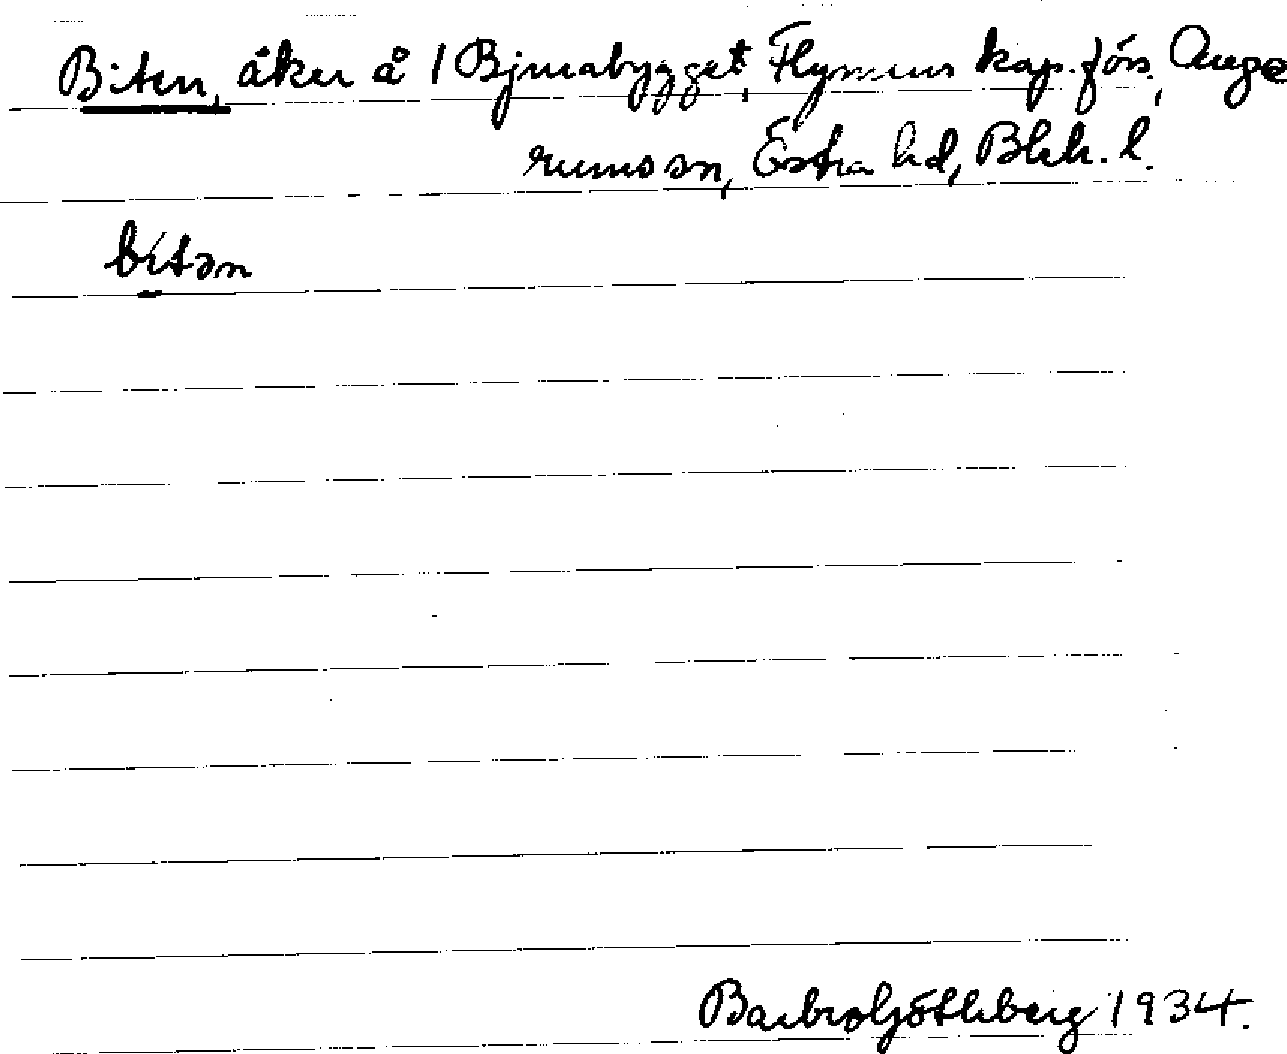 Biten, åker å 1 Bjurabygget, Flymens kap.förs., Auge
rums sn, Östra hd, Blek. l.
bitən
Barbro Göthberg 1934.